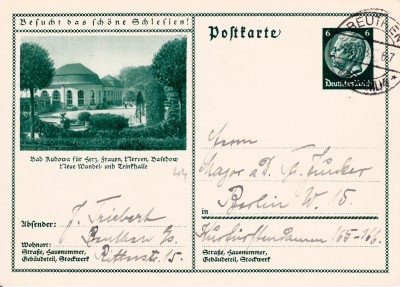 Besucht das schöne Schlesien!
Postkarte
BEUTHEN
6 6
Deutsches Reich
Bad Kudowa für Herz, Frauen, Nerven, Basedow
Neue Wandel- und Trinkhalle
44
Herrn
Major a.D. G. Junker
Berlin W. 15.
in
Kurfürstendamm 165-166.
Straße, Hausnummer,
Gebäudeteil, Stockwerk
Absender: J. Triebert
Wohnort: Beuthen O/S.
Straße, Hausnummer,
Gebäudeteil, Stockwerk
15.